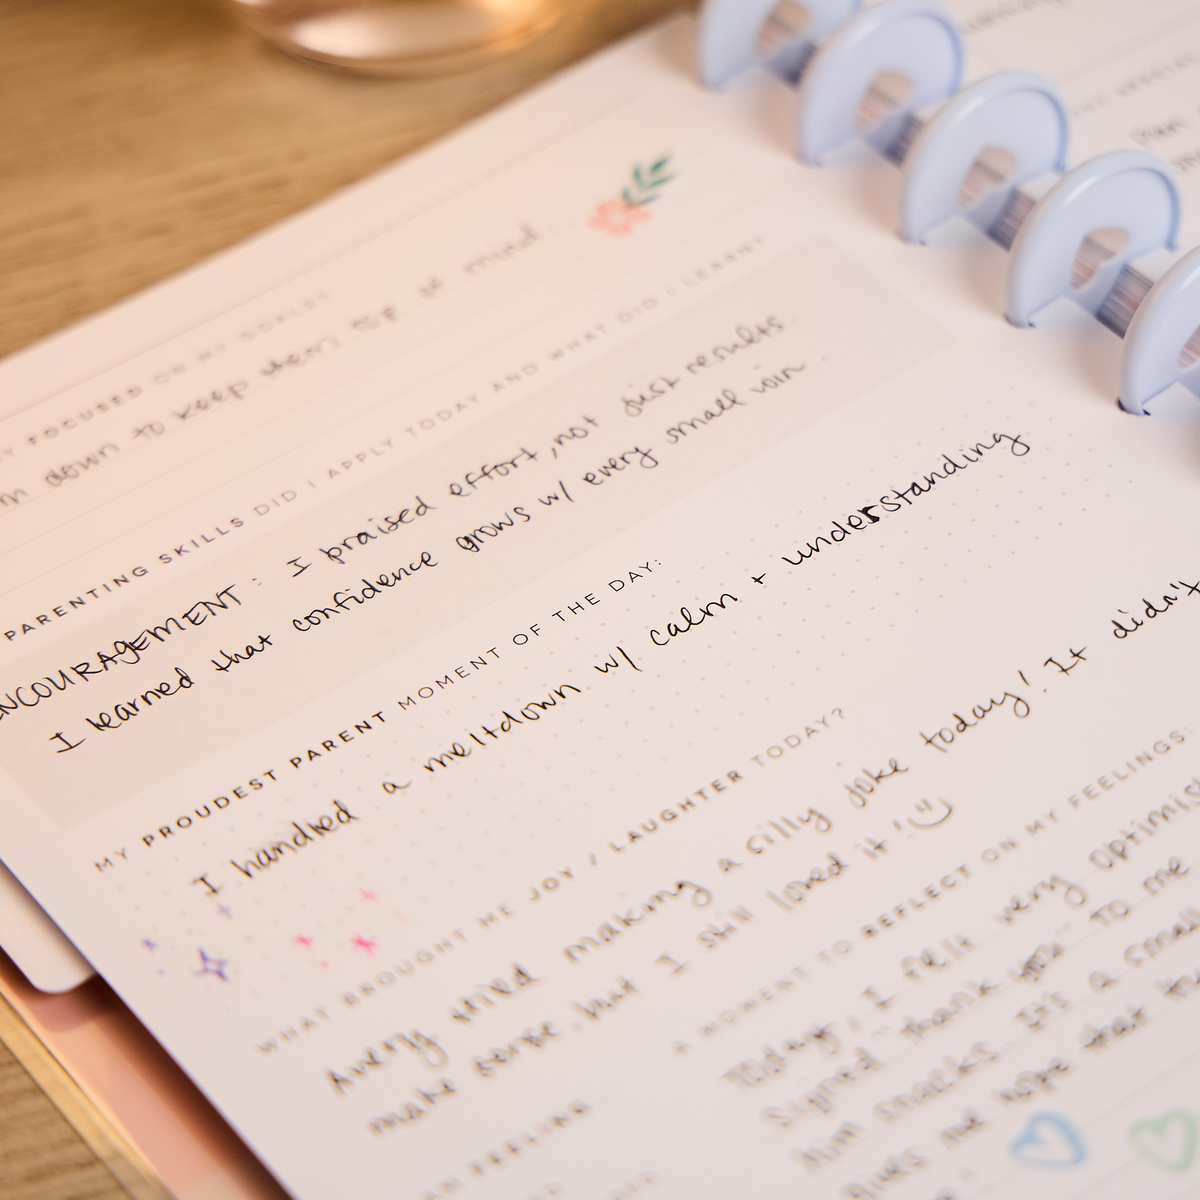 FOCUSED ON MY GOALS?
down to keep them top of mind.
PARENTING SKILLS DID I APPLY TODAY AND WHAT DID I LEARN?
ENCOURAGEMENT: I praised effort, not just results.
I learned that confidence grows w/ every small win.
MY PROUDEST PARENT MOMENT OF THE DAY:
I handled a meltdown w/ calm + understanding
WHAT BROUGHT ME JOY / LAUGHTER TODAY?
Avery tried making a silly joke today! It didn't
make sense, but I still loved it!
A MOMENT TO REFLECT ON MY FEELINGS:
Today, I felt very optimis
signed "thank you" to me
him snacks. It's a small
gives me hope that th
FEELING